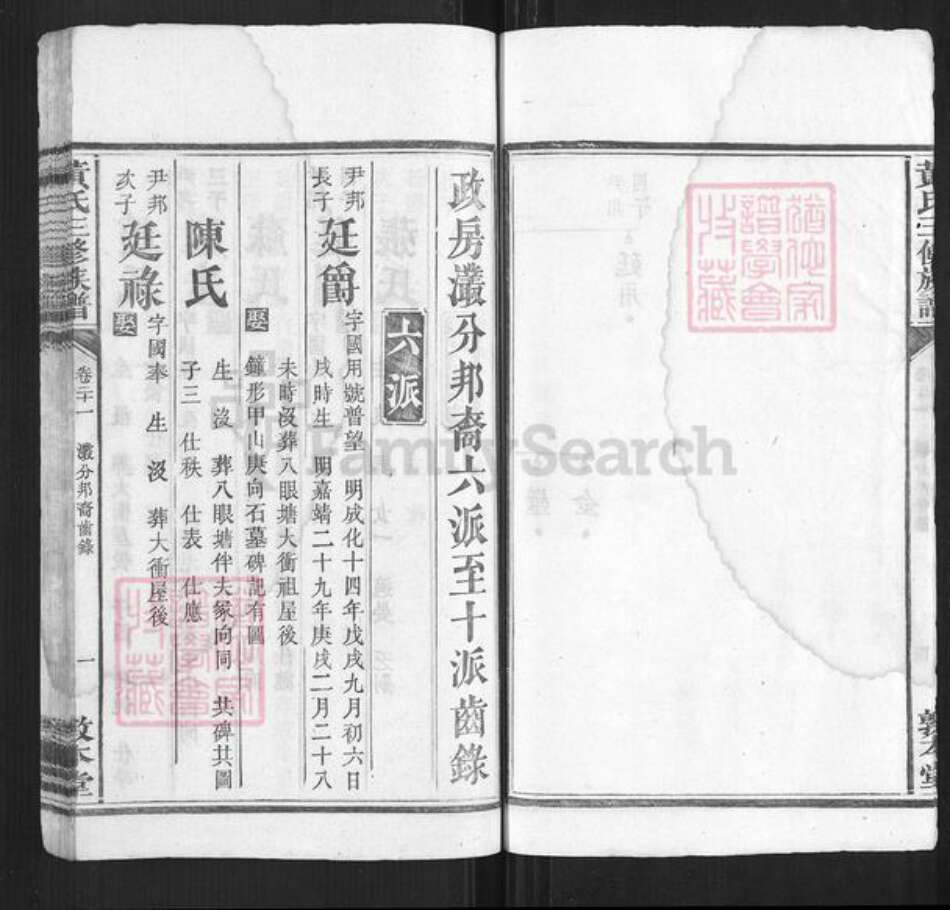 黃氏三修族譜
敦本堂
政房灊分邦裔六派至十派齒錄
六派
尹邦長子 廷爵 字國用號普望 明成化十四年戊戌九月初六日
戌時生 明嘉靖二十九年庚戌二月二十八
未時沒葬八眼塘大衝祖屋後
鐘形甲山庚向石墓碑記有圖
娶 陳氏 生 沒 葬八眼塘伴夫冢向同 共碑共圖
子三 仕秩 仕表 仕應
尹邦次子 廷祿 字國奉 生 沒 葬大衝屋後
娶
黃氏三修族譜 卷二十一 灊分邦裔齒錄 一 敦本堂
猶他家譜學會收藏
猶他家譜學會收藏
FamilySearch